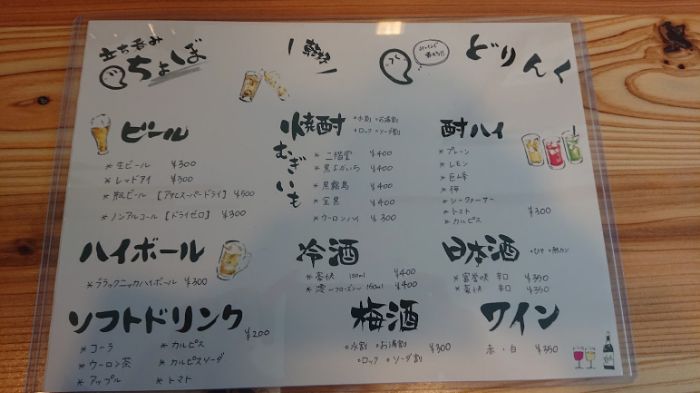 立ち呑み
ちょぼ
どりんく
ビール
* 生ビール ¥300
* レッドアイ ¥300
* 瓶ビール [アサヒスーパードライ] ¥500
* ノンアルコール [ドライゼロ] ¥300
焼酎
・水割 ・お湯割
・ロック ・ソーダ割
むぎ いも
* 二階堂 ¥400
* 黒よかいち ¥400
* 黒霧島 ¥400
* ¥400
* ウーロンハイ ¥300
酎ハイ
* プレーン
* レモン
* 巨峰
*
* シークァーサー
* トマト
* カルピス
¥300
ハイボール
* ブラックニッカハイボール ¥300
冷酒
* ¥400
* ¥400
日本酒
* 辛口 ¥350
* 辛口 ¥350
ソフトドリンク ¥200
* コーラ
* ウーロン茶
* アップル
* カルピス
* カルピスソーダ
* トマト
梅酒
・水割 ・お湯割
・ロック ・ソーダ割
¥300
ワイン
赤・白 ¥350